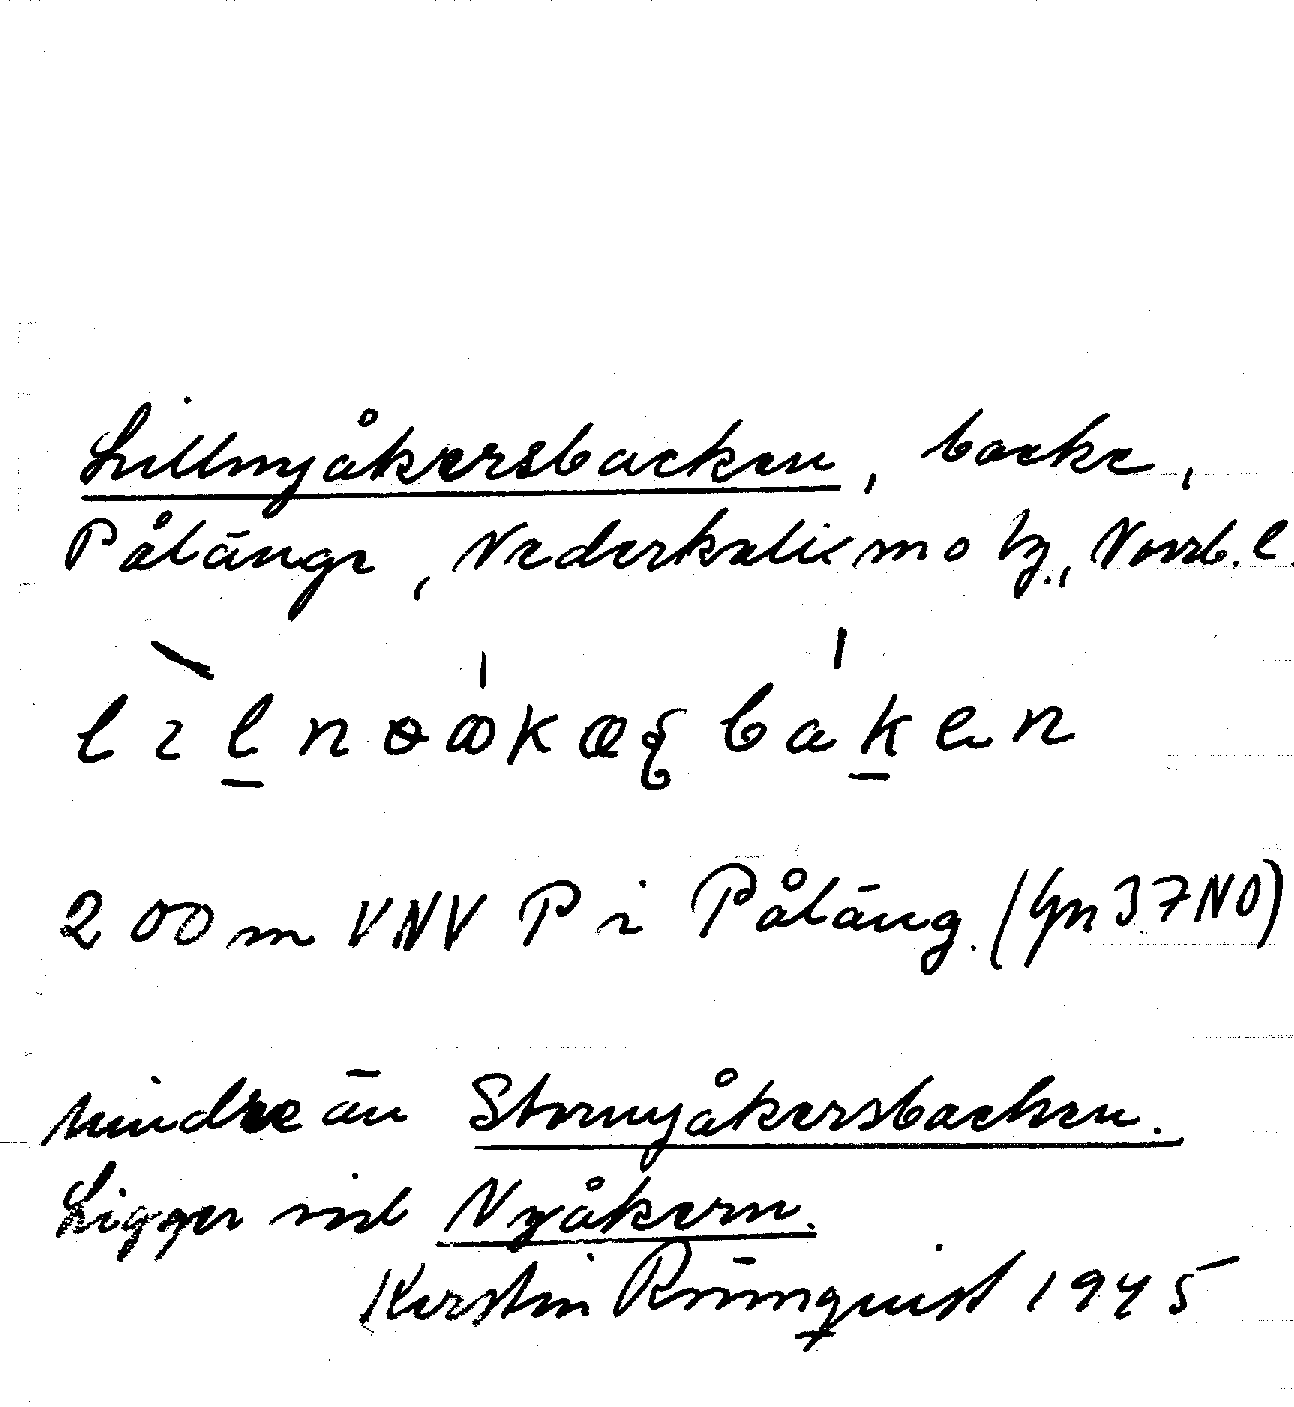 Lillnyåkersbacken, backe,
Pålänge, Nederkalix mo tg., Norrb. l.
200 m VNV P i Påläng. (Gn 37NO)
Mindre än Stornyåkersbacken.
Ligger vid Nyåkern.
Kerstin Rönnquist 1945